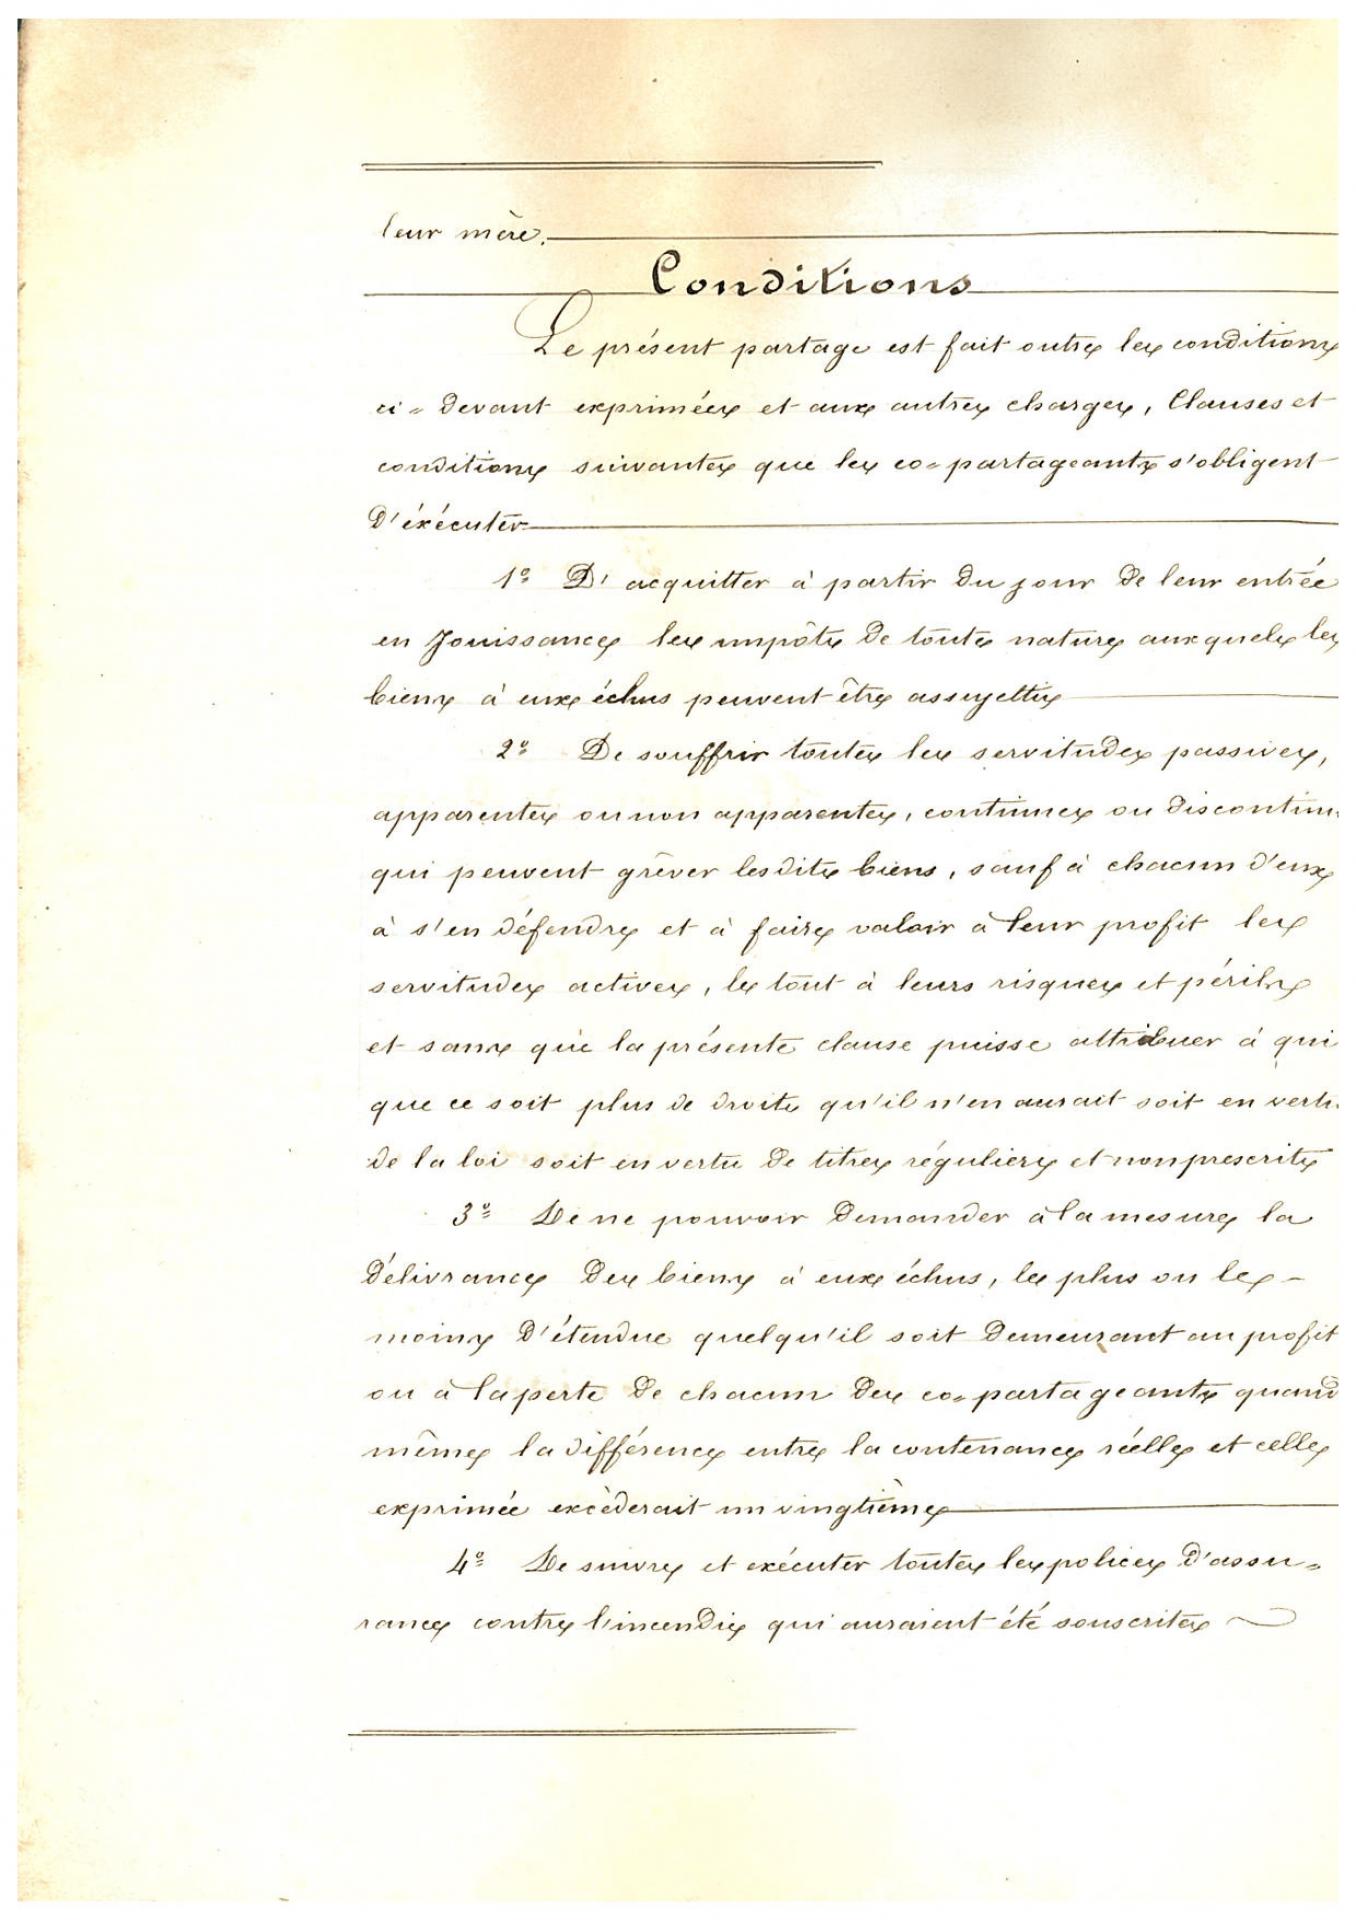 leur mère.
Conditions
Le présent partage est fait outre les conditions
ci=devant exprimées et aux autres charges, Clauses et
conditions suivantes que les co=partageants s'obligent
d'éxécuter
1º D'acquitter à partir du jour de leur entrée
en Jouissance les impôts de toute nature auxquels les
biens à eux échus peuvent être assujettis
2º De souffrir toutes les servitudes passives,
apparentes ou non apparentes, continues ou discontinu
qui peuvent grêver lesdits biens, sauf à chacun d'eux
à s'en défendre et à faire valoir à leur profit les
servitudes actives, le tout à leurs risques et périls
et sans que la présente clause puisse attribuer à qui
que ce soit plus de droits qu'il n'en aurait soit en vertu
de la loi soit en vertu de titres réguliers et non prescrits
3º De ne pouvoir demander à la mesure la
délivrance des biens à eux échus, le plus ou le
moins d'étendue quelqu'il soit demeurant au profit
ou à la perte de chacun des co=partageants quand
même la différence entre la contenance réelle et celle
exprimée excèderait un vingtième
4º De suivre et exécuter toutes les polices d'assu=
rance contre l'incendie qui auraient été souscrites